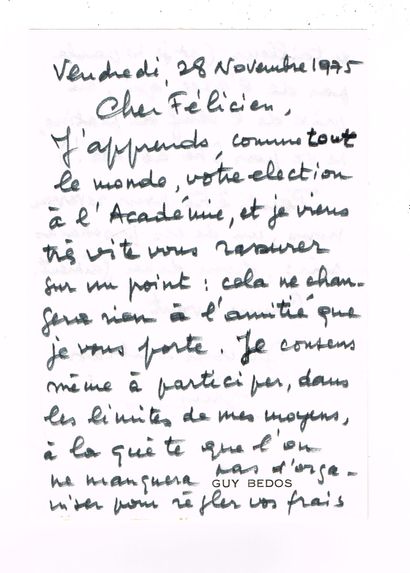 Vendredi, 28 Novembre 1975
Cher Félicien,
J'apprends, comme tout
le monde, votre election
à l'Académie, et je viens
très vite vous rassurer
sur un point : cela ne chan-
gera rien à l'amitié que
je vous porte. Je consens
même à participer, dans
les limites de mes moyens,
à la quête que l'on
ne manquera pas d'orga-
GUY BEDOS
niser pour régler vos frais